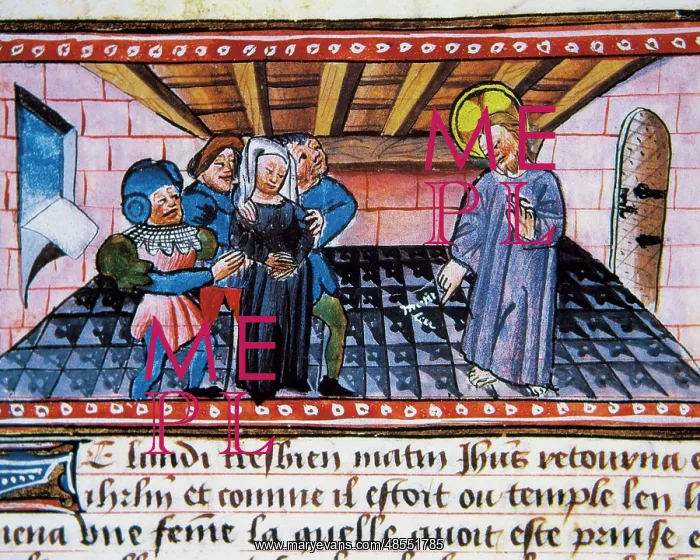 E lundi tresbien matin Jhus retourna e
ihrlm et comme il estoit ou temple len l
mena vne feme la quelle auoit este prinse
ME
PL
ME
PL
www.maryevans.com/48551785